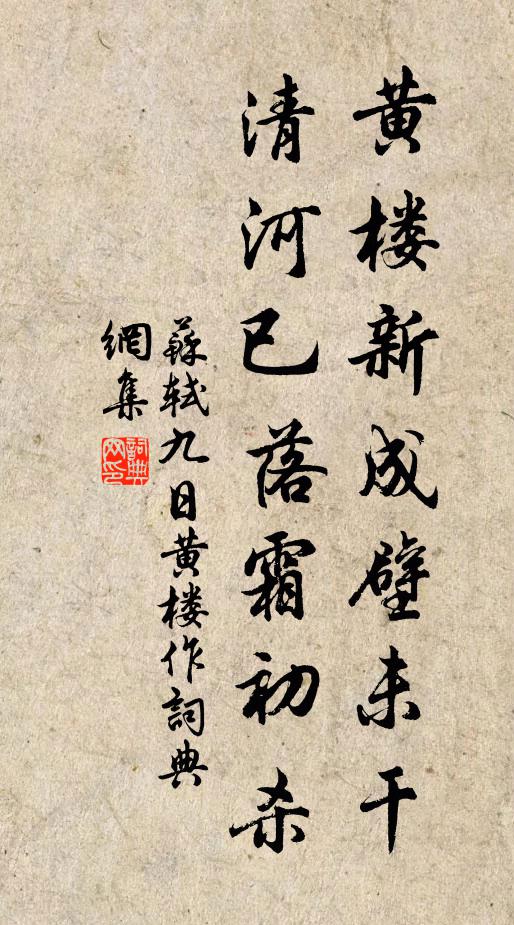 黄楼新成壁未干
清河已落霜初杀
蘇軾九日黄楼作詞典
網集
詞典网印